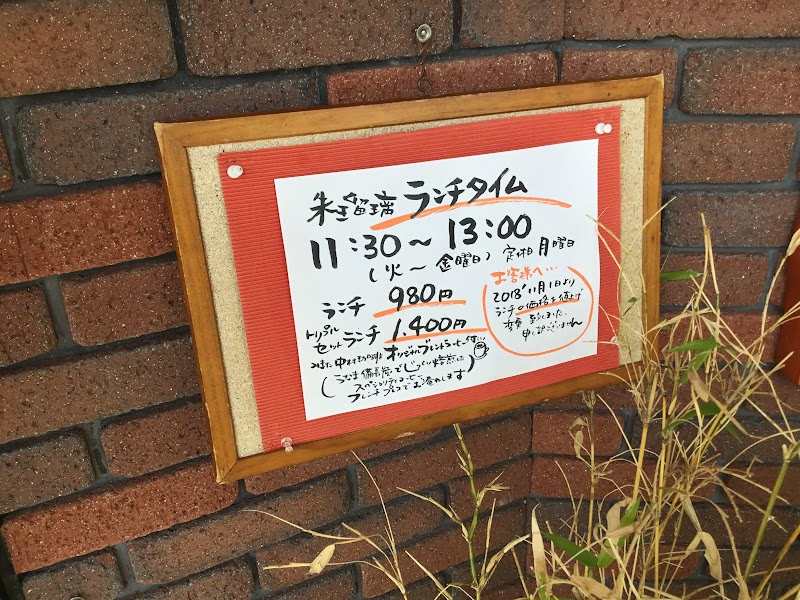 朱瑠璃 ランチタイム
11:30〜13:00
(火〜金曜日) 定休日 月曜日
ランチ 980円
トリプルセットランチ 1.400円
オリジナルブレンドコーヒー付
(うなま備長炭でじっくり焙煎した
スペシャリティコーヒー
フレンチプレスでお淹れします)
お客様へ…
2018'11月1日より
ランチの価格を値上げ
変更 致しました.
申し訳ございません